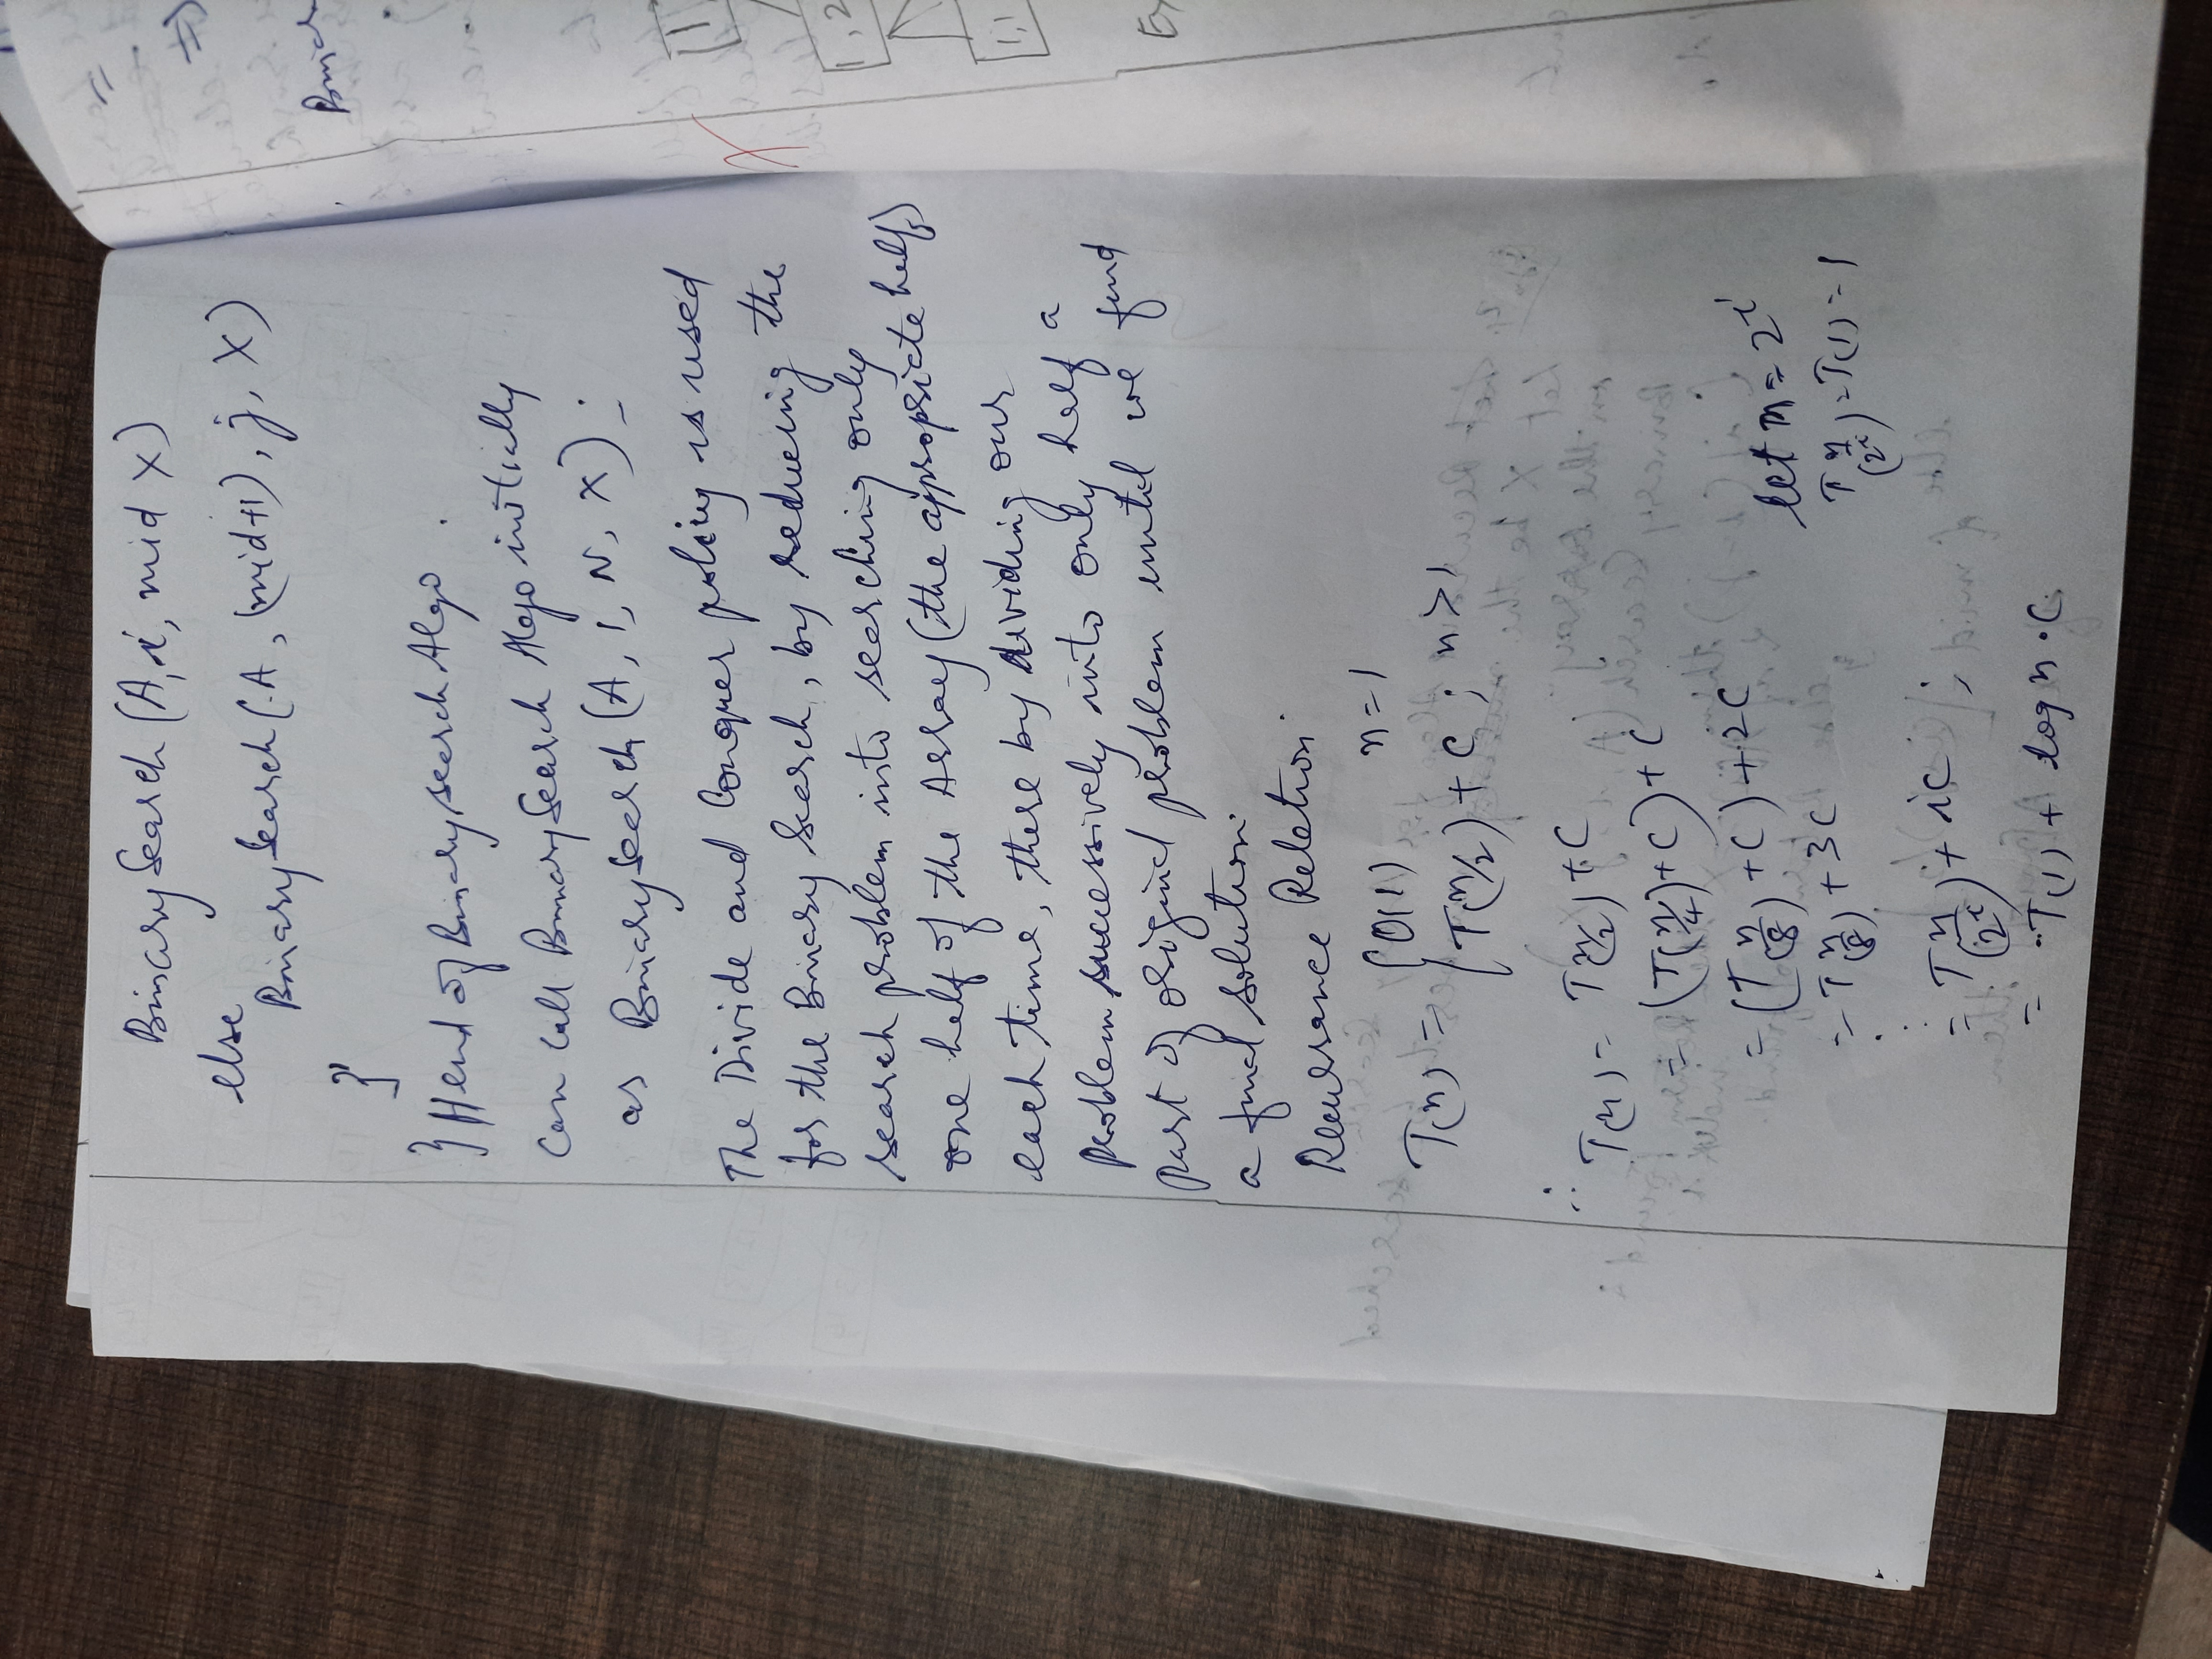 BinarySearch(A, i, mid X)
else
BinarySearch(A, (mid+1), j, X)
}
} // end of Binary search Algo.
Can call BinarySearch Algo initially
as BinarySearch(A, 1, N, X);
The Divide and Conquer policy is used
for the Binary Search, by reducing the
search problem into searching only
one half of the Array (the appropriate half)
each time, there by dividing our
problem successively into only half a
part of original problem until we find
a final solution.
Recurrance Relation
T(n) = { O(1) n=1
T(n/2) + C ; n>1
∴ T(n) = T(n/2) + C
= (T(n/4) + C) + C
= (T(n/8) + C) + 2C
= T(n/8) + 3C
let n = 2^i
T(n/2^i) = T(1) = 1
= T(n/2^i) + iC ;
= T(1) + log n . C
1
1,2
1,1